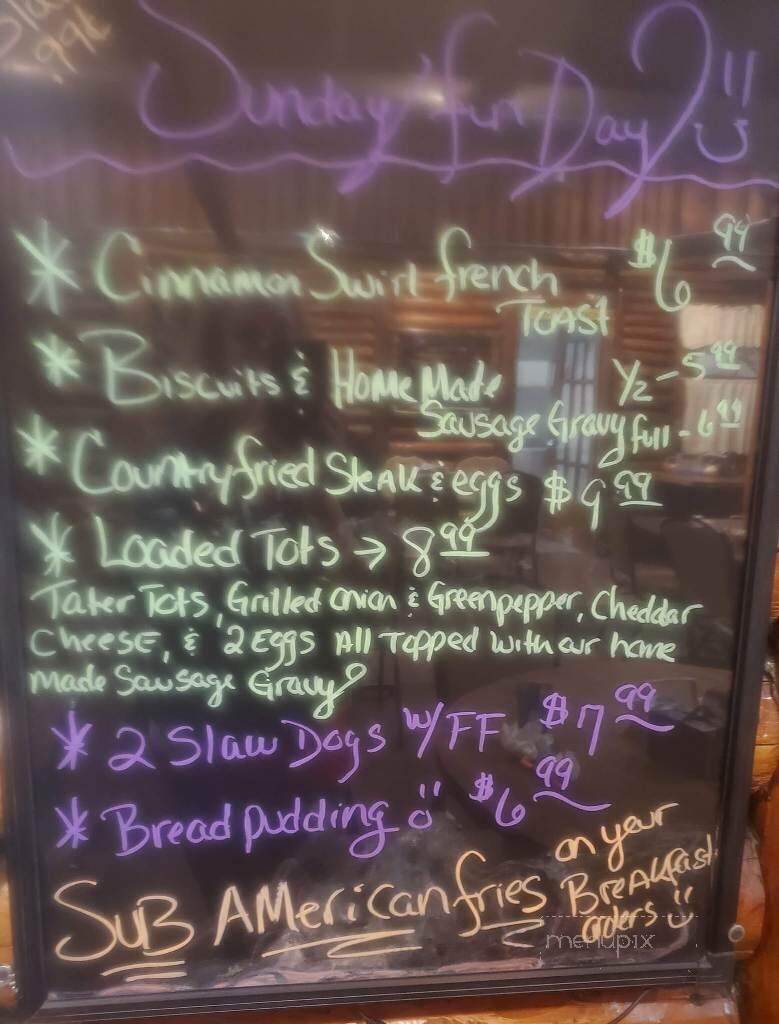 .99¢
Sunday fun Day
* Cinnamon Swirl french $6 99
Toast
* Biscuits & Home Made 1/2 - 5 99
Sausage Gravy full - 6 99
* Country fried Steak & eggs $9 99
* Loaded Tots → 8 99
Tater Tots, Grilled onion & Greenpepper, Cheddar
Cheese, & 2 Eggs All Topped with our home
made Sausage Gravy
* 2 Slaw Dogs w/FF $7 99
* Bread pudding $6 99
Sub American fries on your
Breakfast
orders
menupix